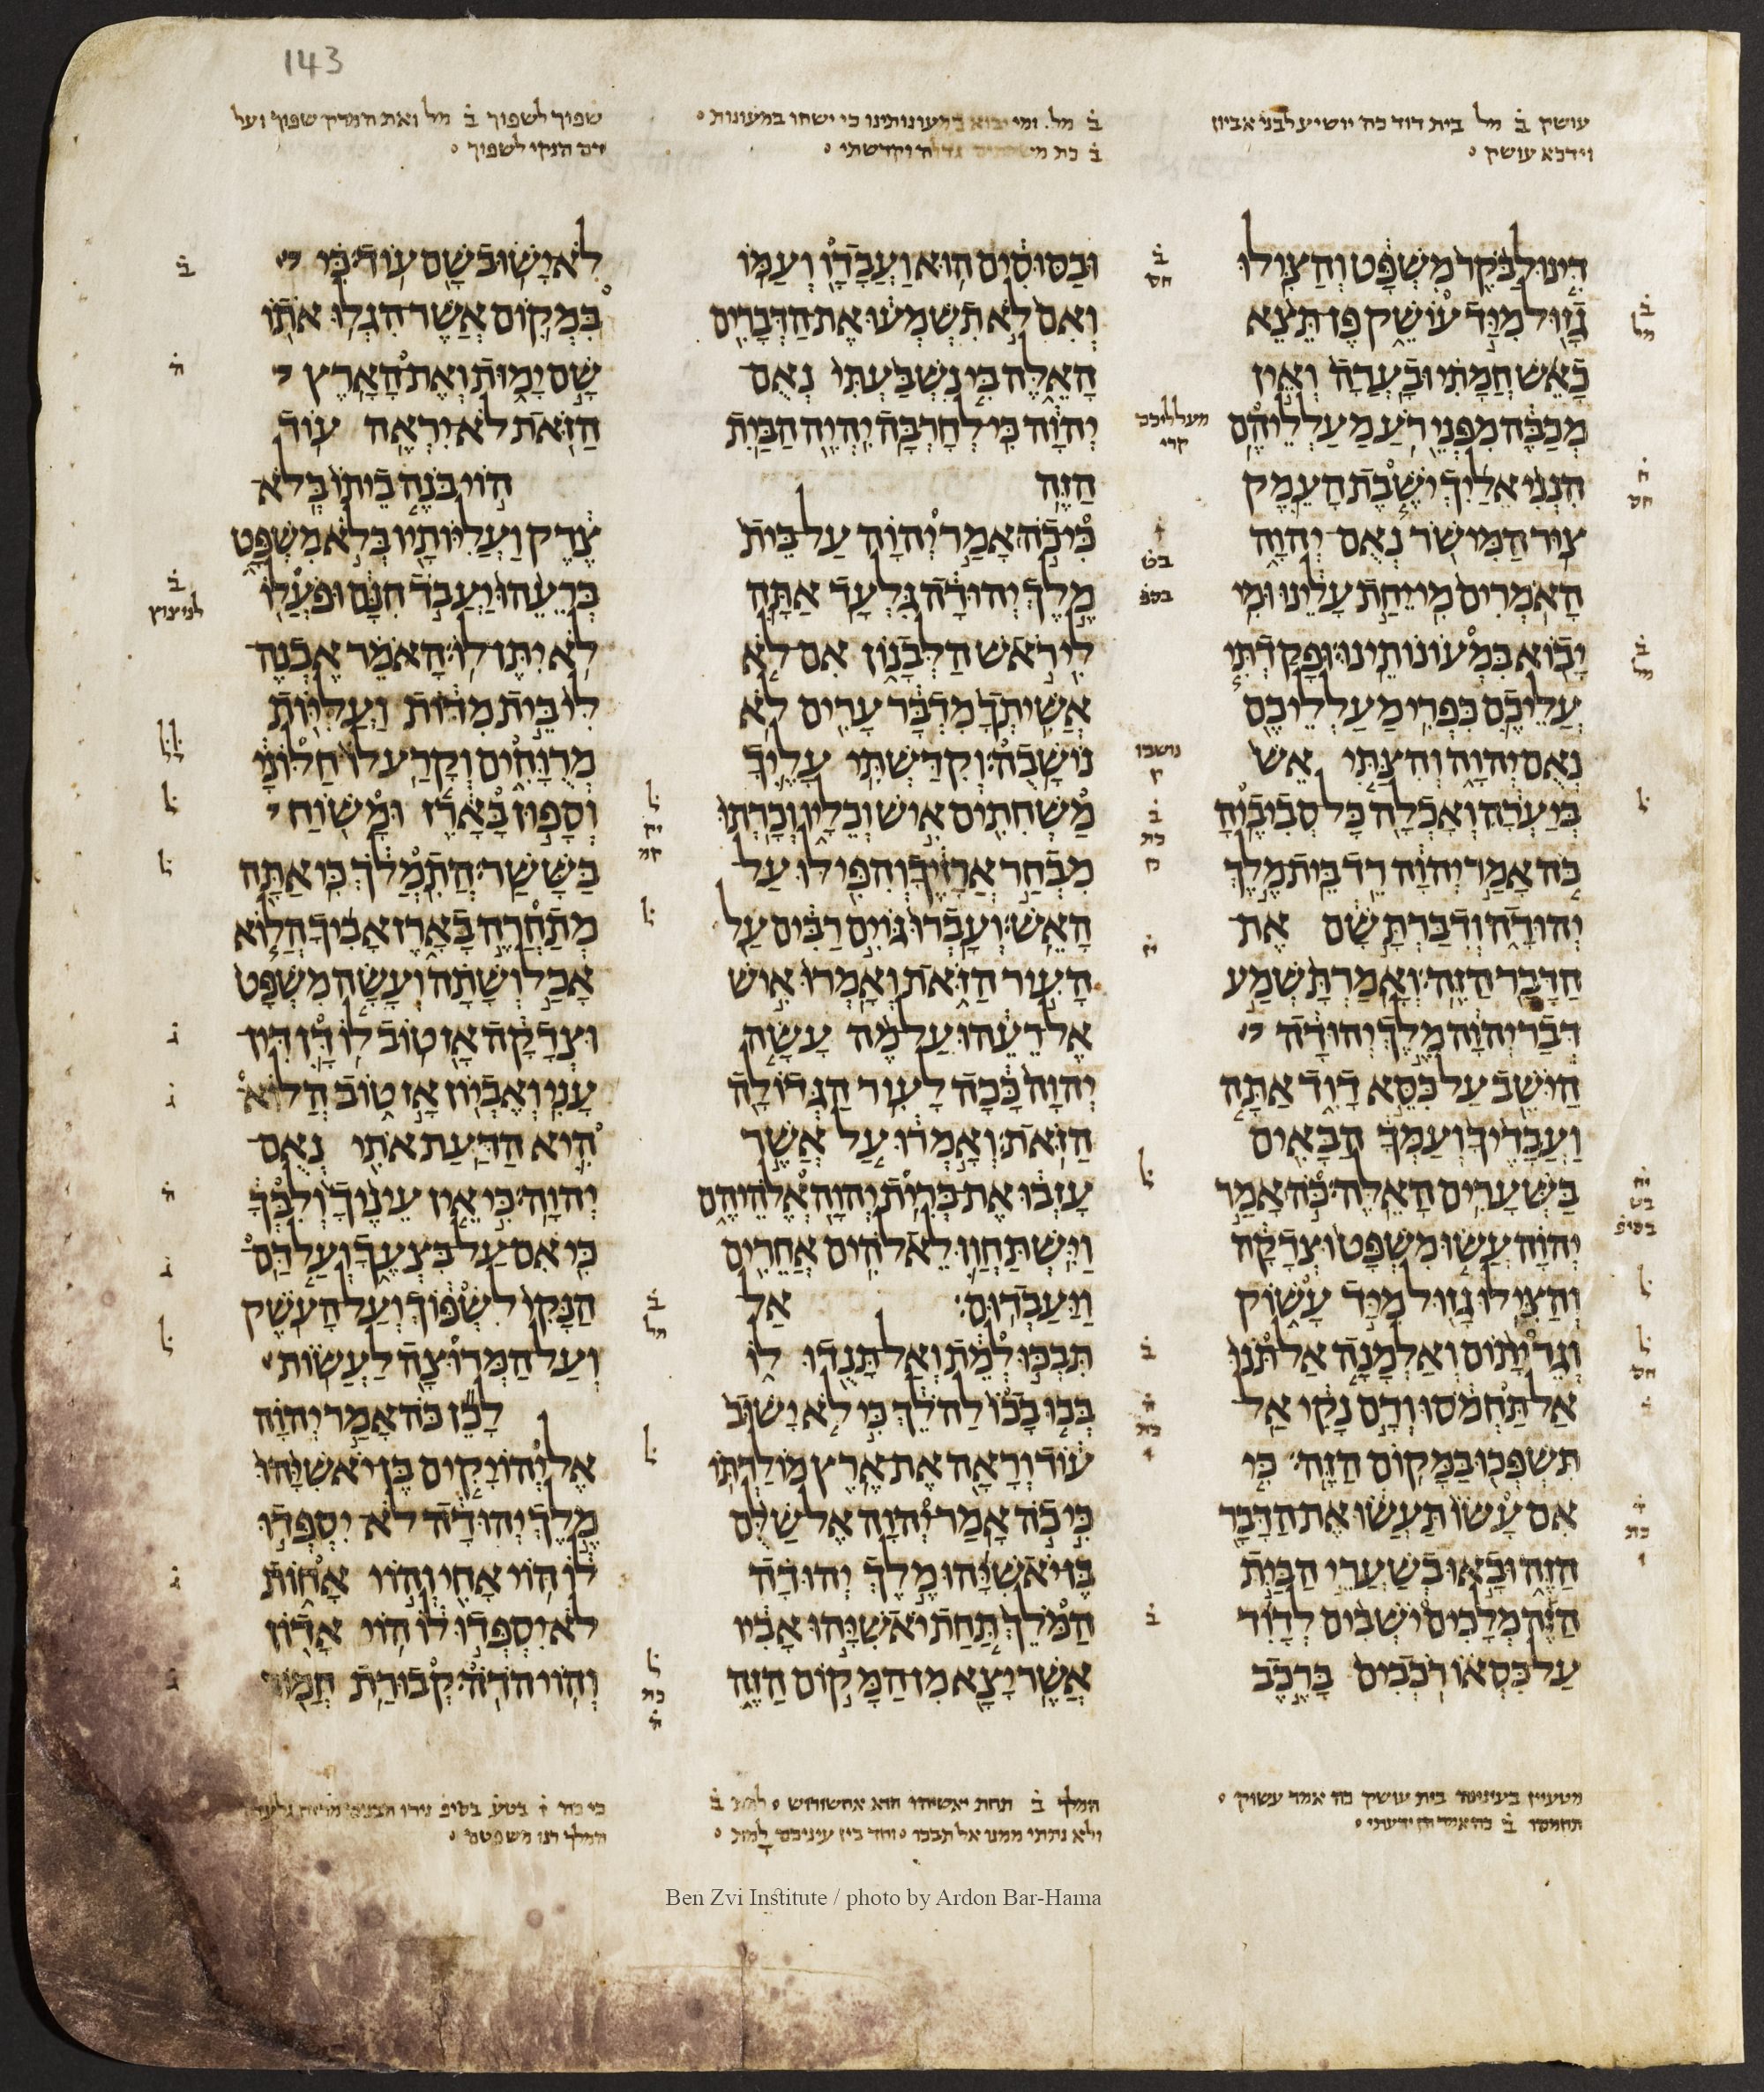 143
עושק ב̇ מל בית דוד כה יושיע לבני אביון
וידכא עושק
ב̇ מל ומי יבוא במעונותינו כי ישחו במעונות
ב̇ כת משחתים גדלה וקדשתי
שפוך לשפוך ב̇ מל ואת המרק שפוך ועל
דם הנקי לשפוך
דינו לבקר משפט והצילו
גזול מיד עושק פן תצא
כאש חמתי ובערה ואין
מכבה מפני רע מעלליהם
הנני אליך ישבת העמק
צור המישר נאם יהוה
האמרים מי יחת עלינו ומי
יבוא במעונותינו ופקדתי
עליכם כפרי מעלליכם
נאם יהוה והצתי אש
ביערה ואכלה כל סביביה
כה אמר יהוה רד בית מלך
יהודה ודברת שם את
הדבר הזה ואמרת שמע
דבר יהוה מלך יהודה
הישב על כסא דוד אתה
ועבדיך ועמך הבאים
בשערים האלה כה אמר
יהוה עשו משפט וצדקה
והצילו גזול מיד עשוק
וגר יתום ואלמנה אל תנו
אל תחמסו ודם נקי אל
תשפכו במקום הזה כי
אם עשו תעשו את הדבר
הזה ובאו בשערי הבית
הזה מלכים ישבים לדוד
על כסאו רכבים ברכב
ובסוסים הוא ועבדו ועמו
ואם לא תשמעו את הדברים
האלה בי נשבעתי נאם
יהוה כי לחרבה יהיה הבית
הזה
כי כה אמר יהוה על בית
מלך יהודה גלעד אתה
לי ראש הלבנון אם לא
אשיתך מדבר ערים לא
נושבה וקדשתי עליך
משחתים איש וכליו וכרתו
מבחר ארזיך והפילו על
האש ועברו גוים רבים על
העיר הזאת ואמרו איש
אל רעהו על מה עשה
יהוה ככה לעיר הגדולה
הזאת ואמרו על אשר
עזבו את ברית יהוה אלהיהם
וישתחוו לאלהים אחרים
ויעבדום אל
תבכו למת ואל תנדו לו
בכו בכו להלך כי לא ישוב
עוד וראה את ארץ מולדתו
כי כה אמר יהוה אל שלם
בן יאשיהו מלך יהודה
המלך תחת יאשיהו אביו
אשר יצא מן המקום הזה
לא ישוב שם עוד כי
במקום אשר הגלו אתו
שם ימות ואת הארץ
הזאת לא יראה עוד
הוי בנה ביתו בלא
צדק ועליותיו בלא משפט
ברעהו יעבד חנם ופעלו
לא יתן לו האמר אבנה
לי בית מדות ועליות
מרוחים וקרע לו חלוני
וספון בארז ומשוח
בששר התמלך כי אתה
מתחרה בארז אביך הלוא
אכל ושתה ועשה משפט
וצדקה אז טוב לו דן דין
עני ואביון אז טוב הלוא
היא הדעת אתי נאם
יהוה כי אין עיניך ולבך
כי אם על בצעך ועל דם
הנקי לשפוך ועל העשק
ועל המרוצה לעשות
לכן כה אמר יהוה
אל יהויקים בן יאשיהו
מלך יהודה לא יספדו
לו הוי אחי והוי אחות
לא יספדו לו הוי אדון
והוי הדה קבורת חמור
המלך ב̇ תחת יאשיהו הוא אחשורוש
ולא נתתי ממנו אל תבכו
המלך דנו משפטם
Ben Zvi Institute / photo by Ardon Bar-Hama